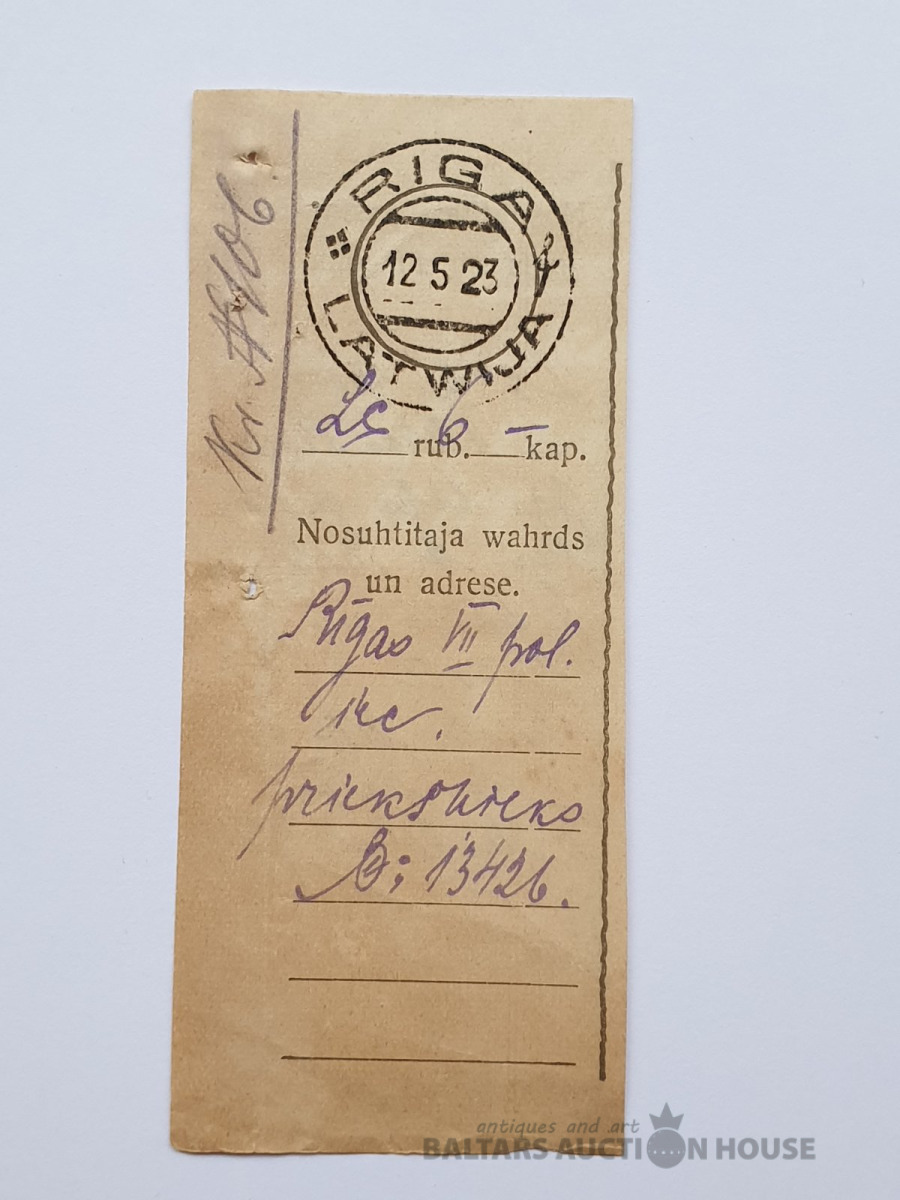 RIGA
12 5 23
LATWIJA
Ls 6 —
rub. kap.
Nosuhtitaja wahrds
un adrese.
Rīgas VII pol.
iec.
priekšnieks
13426.
Nr.
antiques and art
BALTARS AUCTION HOUSE